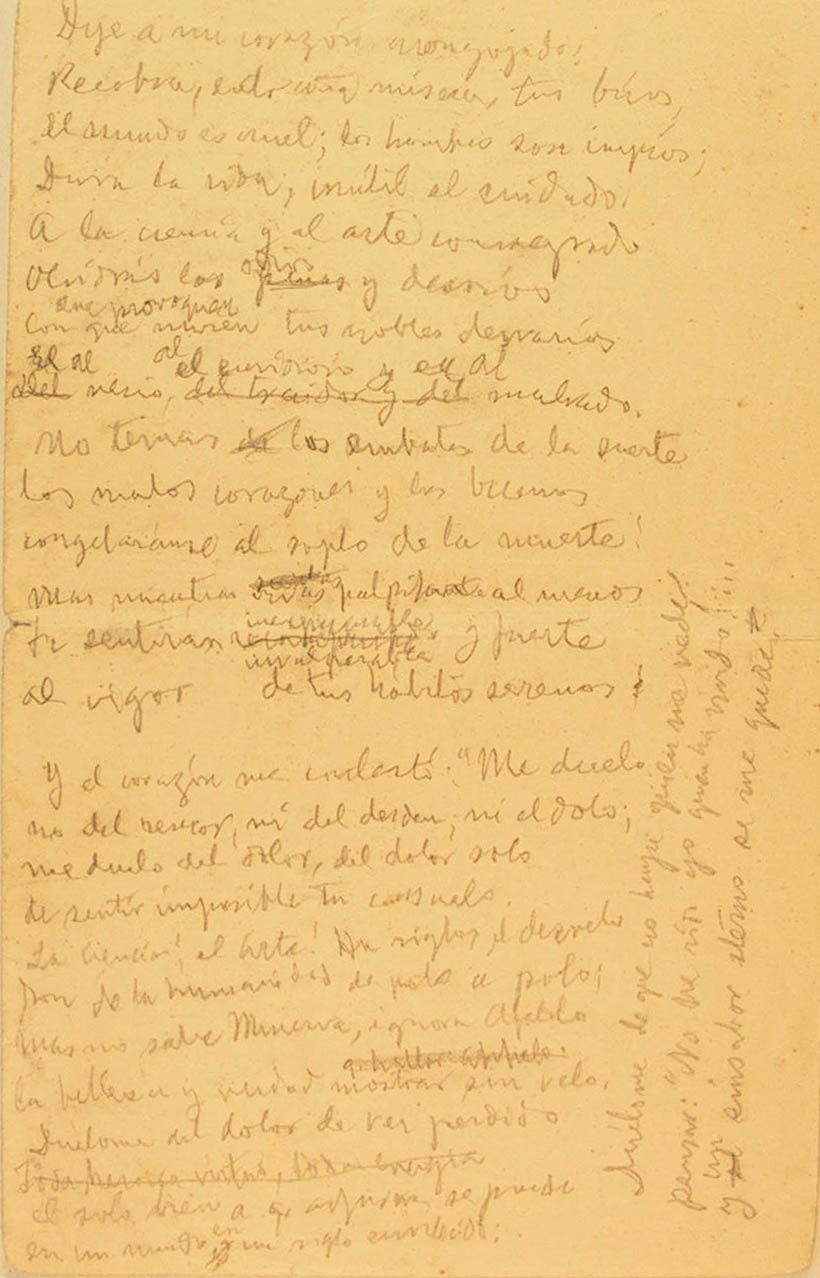 Dije a mi corazón acongojado:
Recobra, entraña mísera, tus bríos,
El mundo es cruel; los hombres son impíos;
Dura la vida, inútil el cuidado.
A la ciencia y al arte consagrado
Olvidarás los y desvíos
que provoquen
con que miren tus nobles desvaríos
el al al el envidioso y el al
del necio, del traidor y del malvado.
No temas de los embates de la suerte
Los malos corazones y los buenos
congelaránse al soplo de la muerte!
Mas mientras vivas palpitante al menos
te sentirán y fuerte
invulnerable
al vigor de tus hábitos serenos!
Y el corazón me contestó: "Me duelo
no del rencor, ni del desdén, ni el dolo;
me duelo del dolor, del dolor solo
de sentir imposible tu consuelo.
La ciencia! el Arte! Un siglos el desvelo
son de la humanidad de polo a polo;
mas no sabe Minerva, ignora Apolo
la belleza y verdad mostrar sin velo.
Duélome del dolor de ver perdido
Toda heroica virtud, toda energía
el solo bien a q. aspirar se puede
en un mundo, en un siglo envilecido;
Duélome de que no haya quien me vede
pensar: "No he sido yo quien ha vivido!...
y el sinsabor eterno se me quede."